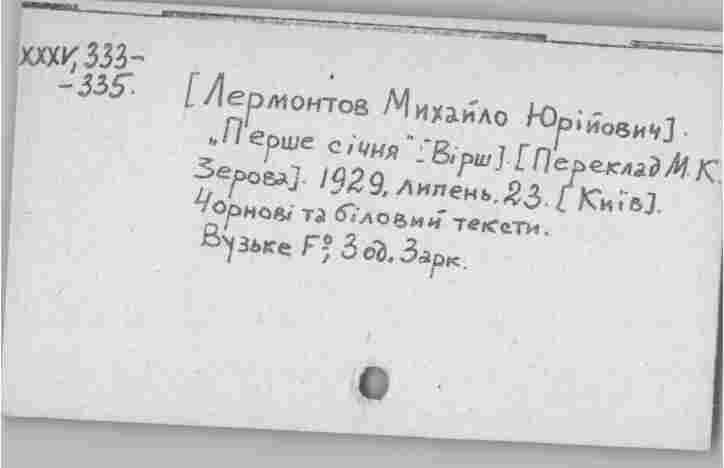 XXXV, 333-
-335.
[Лермонтов Михайло Юрійович].
„Перше січня": [Вірш]. [Переклад М. К.
Зерова]. 1929, липень. 23. [Київ].
Чорнові та біловий тексти.
Вузьке F°, 3 од. 3 арк.